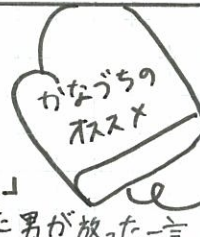 かなづちの
オススメ
」
た男が放った一言